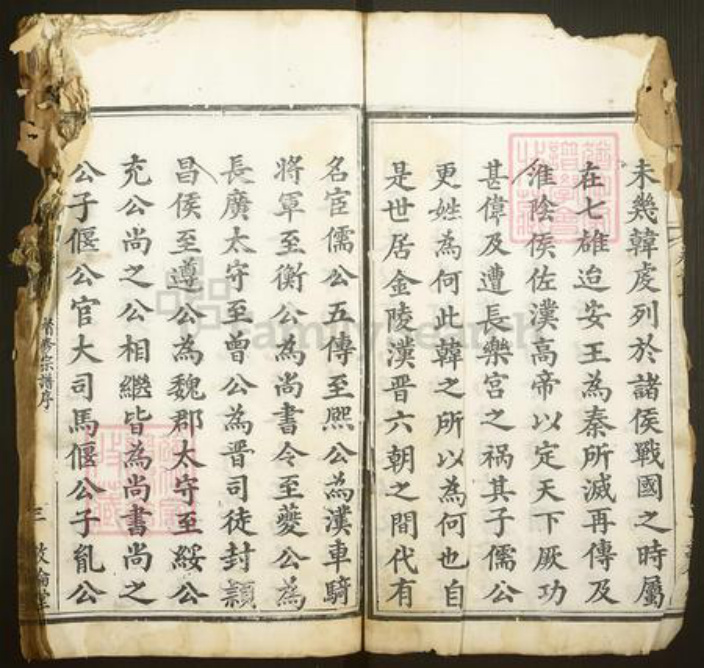 未幾韓虔列於諸侯戰國之時屬
在七雄迨安王為秦所滅再傳及
淮陰侯佐漢高帝以定天下厥功
甚偉及遭長樂宮之禍其子儒公
更姓為何此韓之所以為何也自
是世居金陵漢晋六朝之間代有
名宦儒公五傳至熈公為漢車騎
將軍至衡公為尚書令至夔公為
長廣太守至曾公為晋司徒封潁
昌侯至遵公為魏郡太守至綏公
充公尚之公相繼皆為尚書尚之
公子偃公官大司馬偃公子胤公
宗譜序
三
敦倫堂
FamilySearch